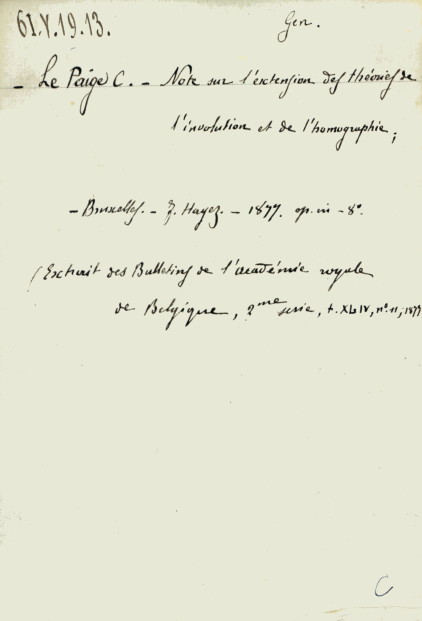 61.V.19.13.
Gen.
- Le Paige C. - Note sur l'extension des théories de
l'involution et de l'homographie;
- Bruxelles. - F. Hayez. - 1877. op. in - 8°.
(Extrait des Bulletins de l'académie royale
de Belgique, 2me serie, t. XLIV, n° 11, 1877
C